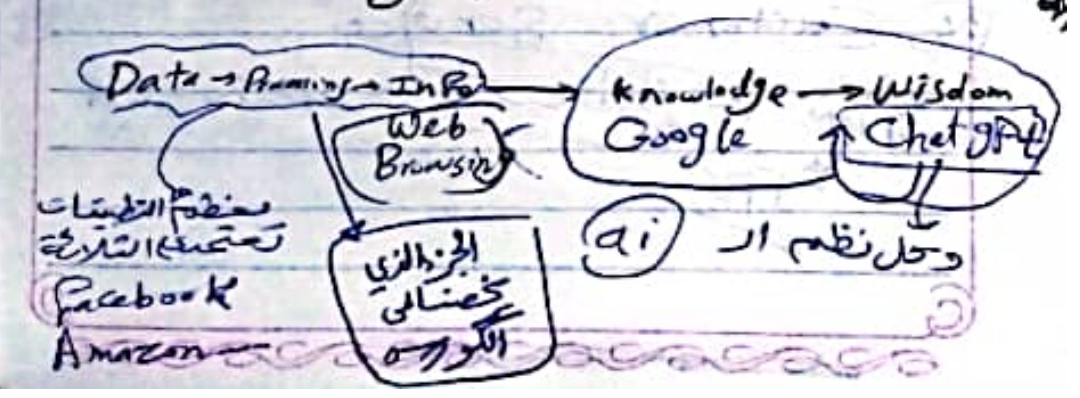 Data → Processing → Info → Knowledge → Wisdom
Web Browsing
Google
Chat gpt
معظم التطبيقات
تعتمد على الثلاثة
Facebook
Amazon
الجزء الذي
يخصنا في
الكورس
وكل نظم ال ai